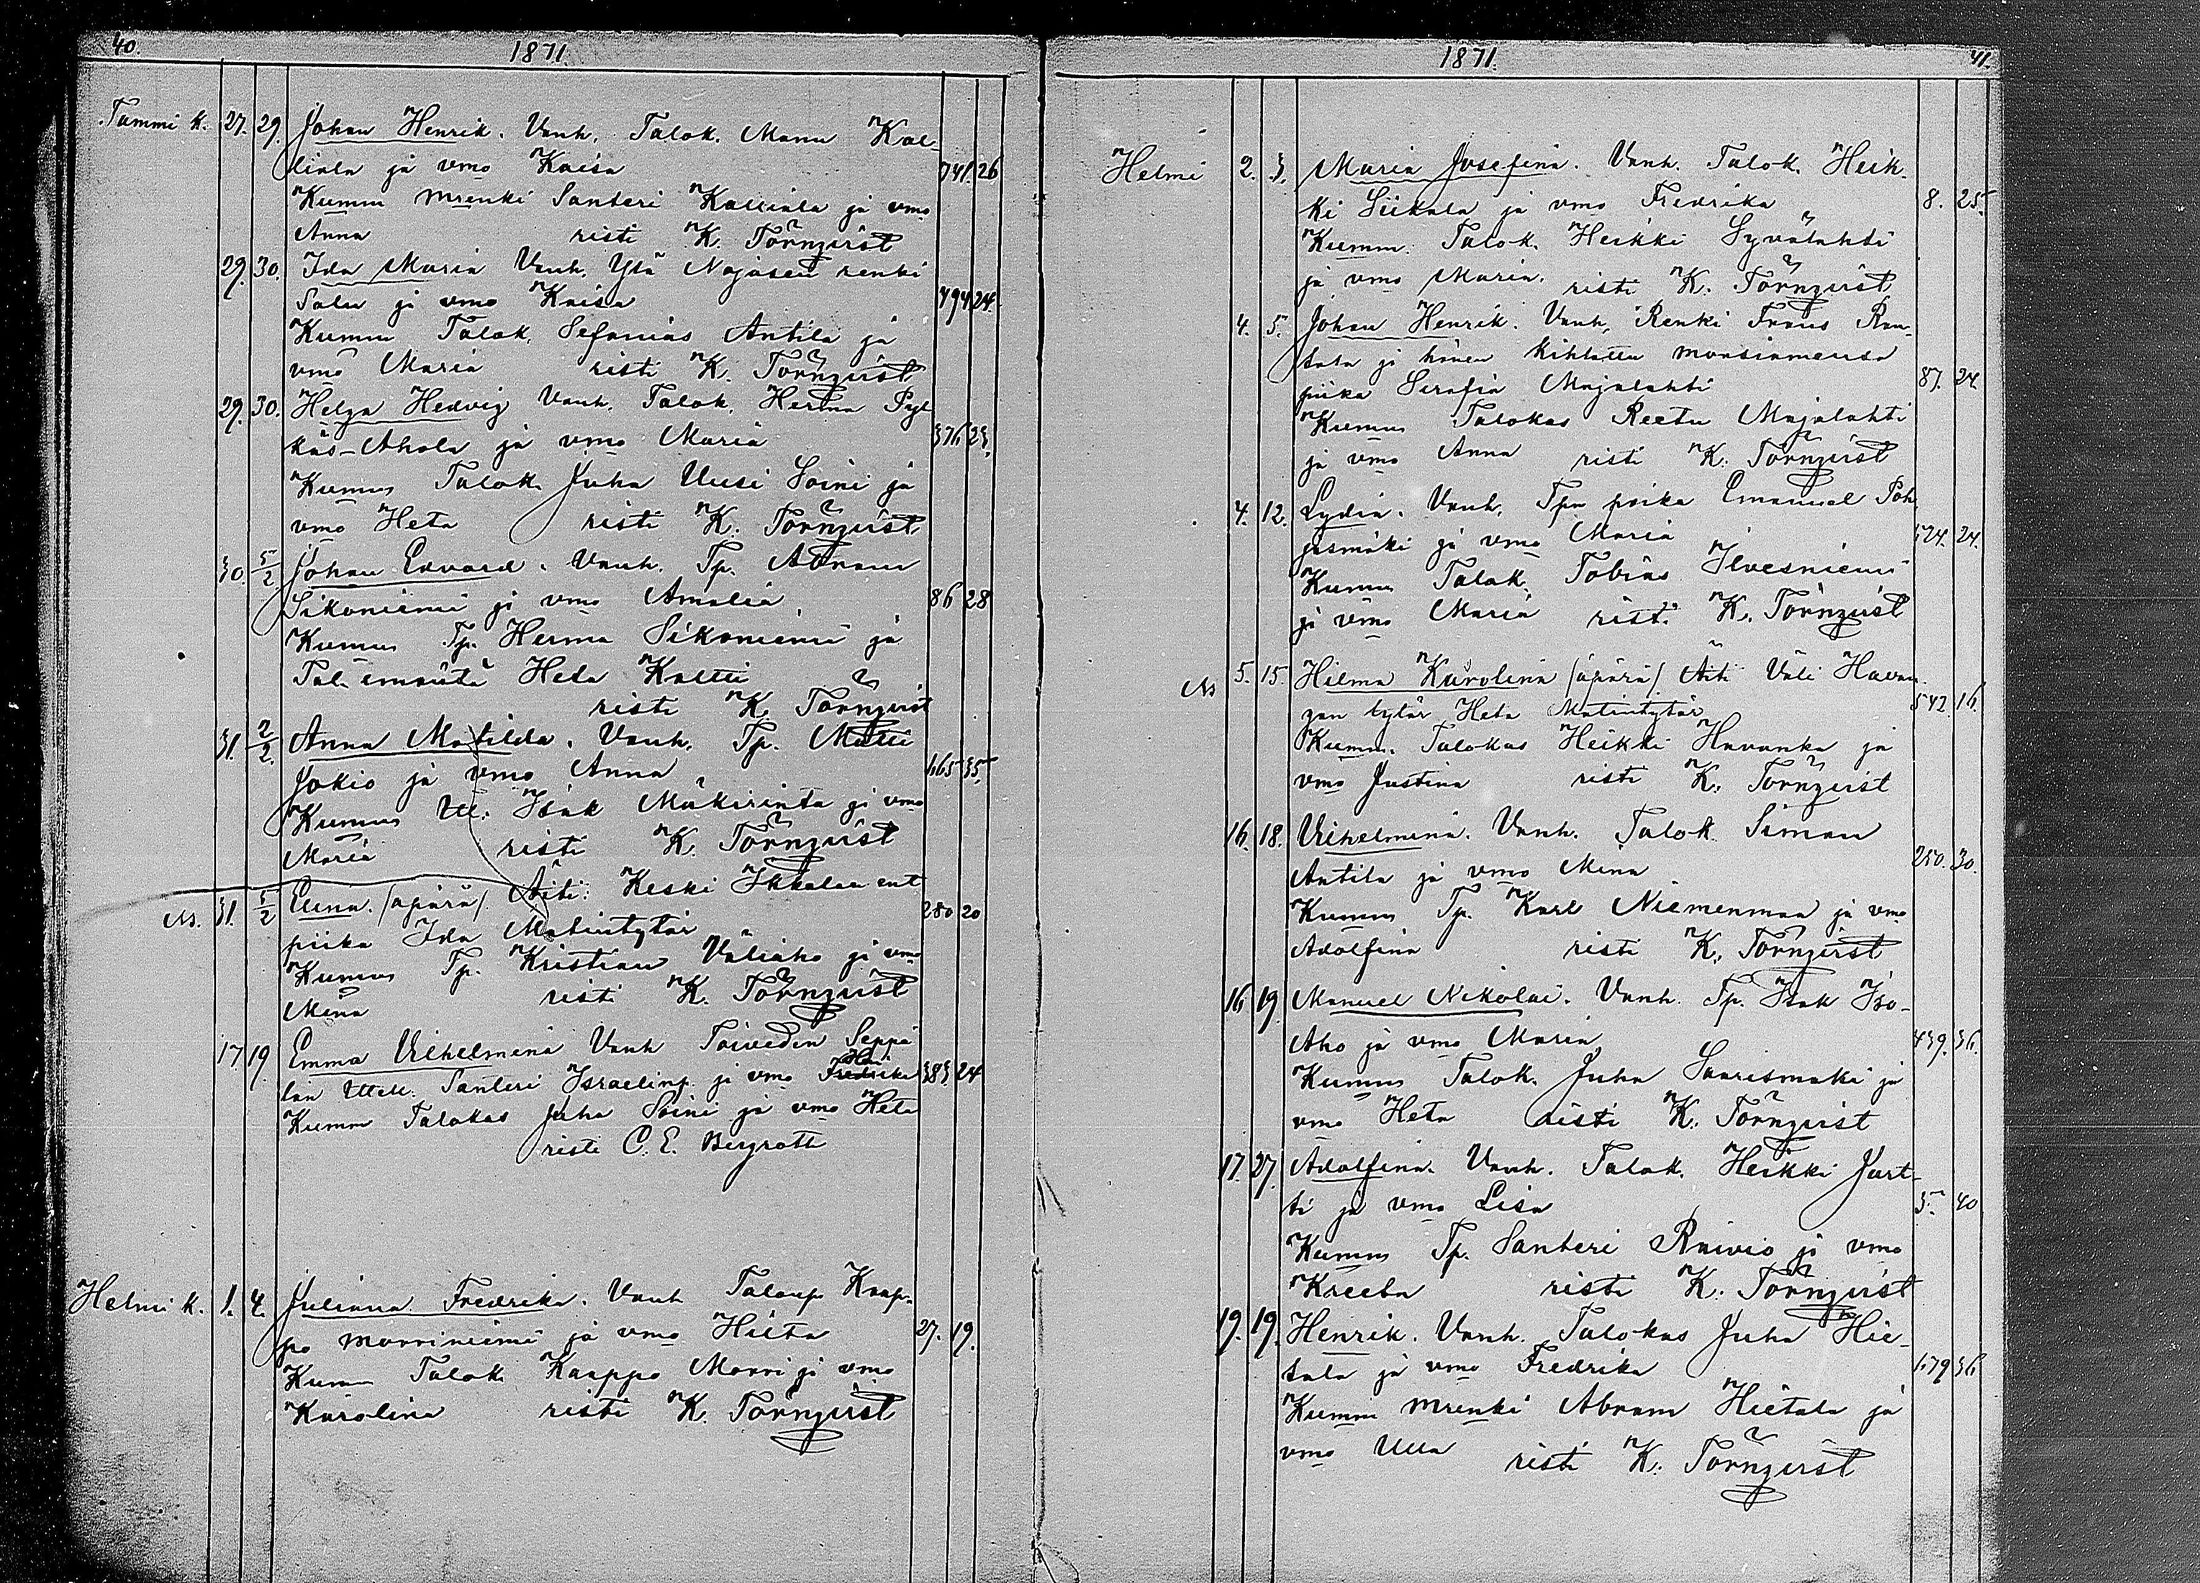 40.
1871.
Tammi k. 27. 29. Johan Henrik. Vanh. Talok. Manu Kal-
liala ja vmo Kaisa 26
Kumm mrenki Santeri Kalliala ja vmo
Anna risti K. Törnqvist
29. 30. Ida Maria Vanh. Ylä Najasen renki
Salu ja vmo Kaisa 494 24.
Kumm Talok. Sefanias Antila ja
vmo Maria risti K. Törnqvist
29. 30. Helga Hedvig Vanh. Talok. Herma Pyl
käs-Ahola ja vmo Maria 376 23.
Kumm Talok. Juha Uusi Soini ja
vmo Heta risti K. Törnqvist
30. 5/2 Johan Edvard. Vanh. Tp. Abram
Sikoniemi ja vmo Amalia 86 28
Kumm Tp. Herma Sikoniemi ja
Tal. emäntä Heta Kaltti
risti K. Törnqvist
31. 2/2. Anna Matilda. Vanh. Tp. Matti
Jokio ja vmo Anna 165 35
Kumm Itl. Isak Mäkirinta ja vmo
Maria risti K. Törnqvist
Ns. 31. 5/2 Elina. /äpärä/. Äiti: Keski Ikkalan ent
piika Ida Matintytär 280 20
Kumm Tp. Kristian Väliaho ja vmo
Mina risti K. Törnqvist
17 19. Emma Vilhelmina Vanh Toiveden Seppä
lan Itell. Santeri Israelinp. ja vmo Fredrika 383 24
Kumm Talokas Juha Soini ja vmo Heta
risti C. E. Bergroth
Helmi k. 1. 4. Juliana Fredrika. Vanh Talonp Kaap-
po Morriniemi ja vmo Hieta 27. 19.
Kumm Talok. Kaappo Morri ja vmo
Karolina risti K. Törnqvist
1871. 41.
Helmi 2. 3. Maria Josefina. Vanh. Talok. Heik-
ki Siikala ja vmo Fredrika 8. 25.
Kumm. Talok. Heikki Syvälahti
ja vmo Maria. risti K. Törnqvist
4. 5. Johan Henrik. Vanh. Renki Frans Ran-
tala ja hänen kihlattu morsiamensa
piika Serafia Majalahti 87. 24.
Kumm Talokas Reetu Majalahti
ja vmo Anna risti K. Törnqvist
4. 12. Lydia. Vanh. Tpn poika Emanuel Poh
jasmäki ja vmo Maria 524. 24.
Kumm Talok. Tobias Ilvesniemi
ja vmo Maria risti K. Törnqvist
Ns 5. 15. Hilma Karolina /äpärä/ Äiti Väli Havan
gan tytär Heta Matintytär 542. 16.
Kumm. Talokas Heikki Havanka ja
vmo Justina risti K. Törnqvist
16. 18. Vilhelmina. Vanh. Talok. Siman
Antila ja vmo Mina 250. 30.
Kumm Tp. Karl Niemenmaa ja vmo
Adolfina risti K. Törnqvist
16 19. Manuel Nikolai. Vanh. Tp. Isak Iso-
Aho ja vmo Maria 439. 36.
Kumm Talok. Juha Saarismäki ja
vmo Heta risti K. Törnqvist
17. 27. Adolfina. Vanh. Talok. Heikki Jart-
ti ja vmo Lisa 5 40
Kumm Tp. Santeri Raivio ja vmo
Kreeta risti K. Törnqvist
19. 19. Henrik. Vanh. Talokas Juha Hie-
tala ja vmo Fredrika 179 36
Kumm mrenki Abram Hietala ja
vmo Ulla risti K. Törnqvist